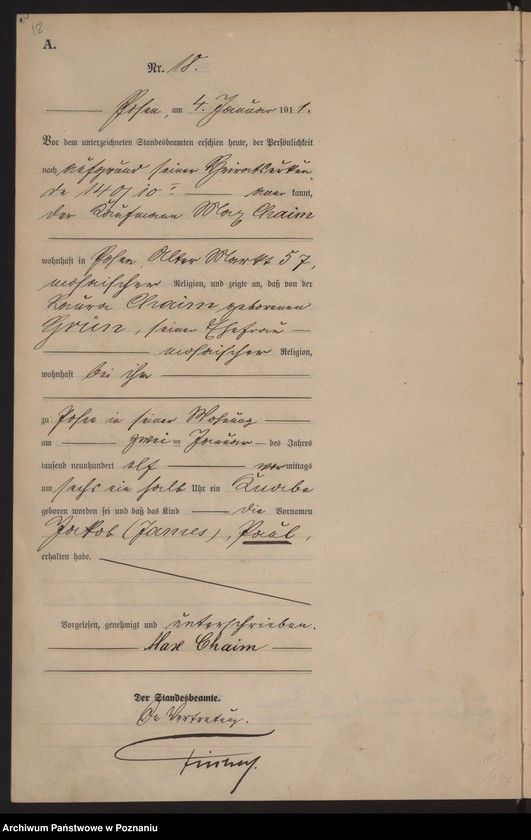 18
A.
Nr. 18.
Posen, am 4. Januar 1911.
Vor dem unterzeichneten Standesbeamten erschien heute, der Persönlichkeit
nach aufgrund seiner Heiratsurkun-
de 140/10 aner kannt,
der Kaufmann Max Chaim
wohnhaft in Posen, Alter Markt 57,
mosaischer Religion, und zeigte an, daß von der
Laura Chaim geborenen
Grün, seiner Ehefrau
mosaischer Religion,
wohnhaft bei ihm
zu Posen in seiner Wohnung
am zwei ten Januar des Jahres
tausend neunhundert elf vor mittags
um sechs ein halb Uhr ein Knabe
geboren worden sei und daß das Kind die Vornamen
Jakob (James), Paul,
erhalten habe.
Vorgelesen, genehmigt und unterschrieben.
Max Chaim
Der Standesbeamte.
In Vertretung.
Archiwum Państwowe w Poznaniu